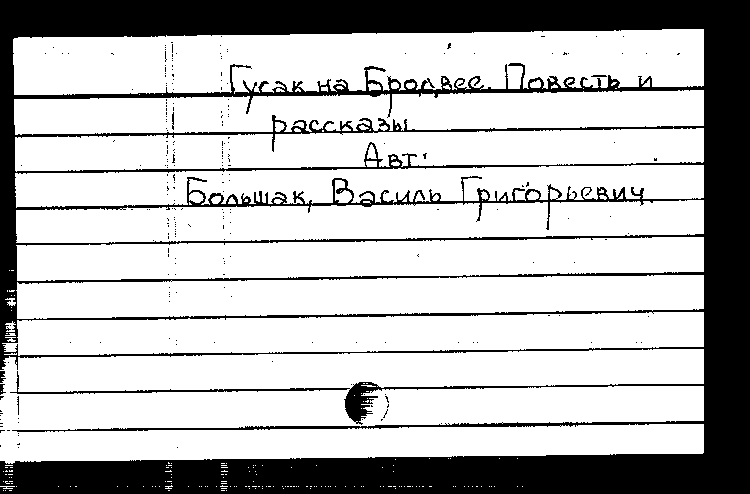 Гусак на Бродвее. Повесть и
рассказы.
Авт.
Большак, Василь Григорьевич.